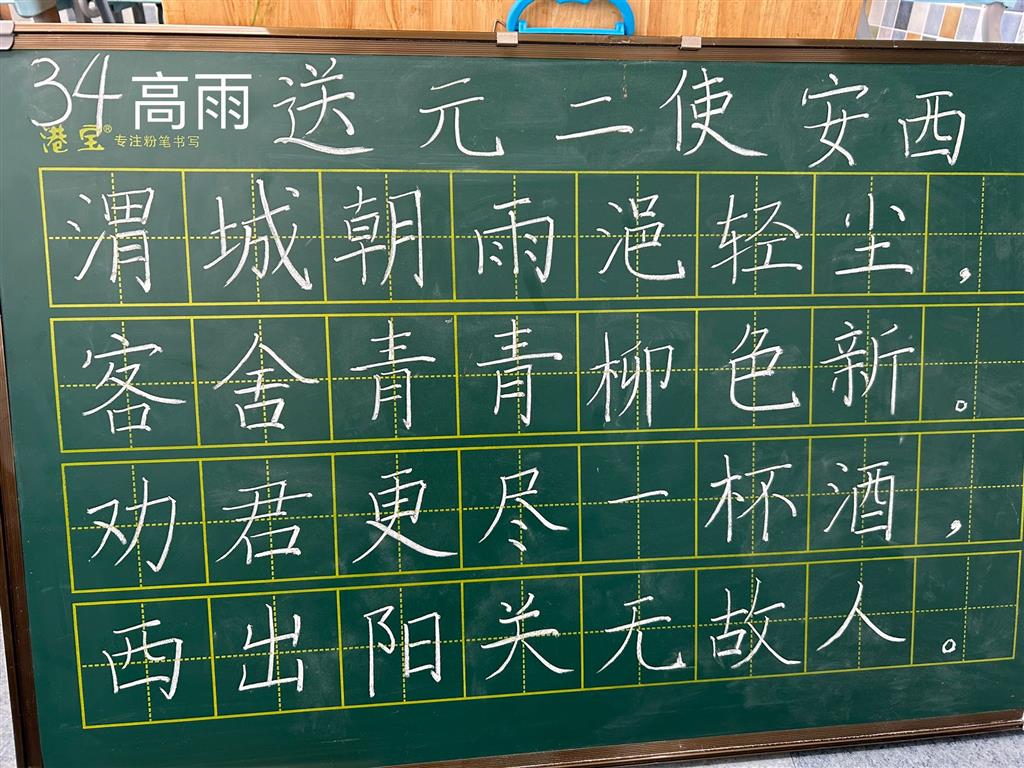 34 高雨 送元二使安西
港宝® 专注粉笔书写
渭城朝雨浥轻尘，
客舍青青柳色新。
劝君更尽一杯酒，
西出阳关无故人。